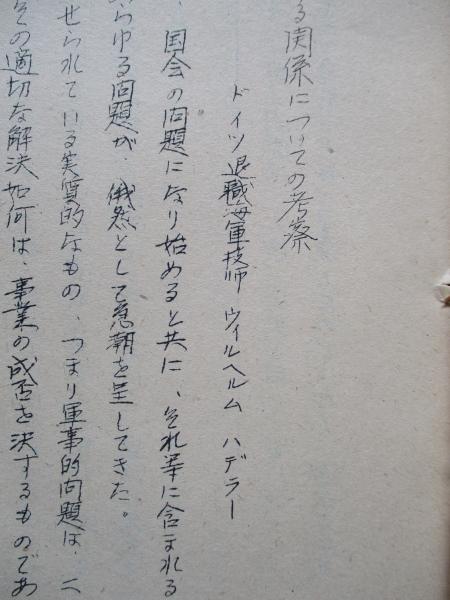 る関係についての考察
ドイツ退職海軍技師 ウィルヘルム ハデラー
国会の問題になり始めると共に、それ等に含まれる
らゆる問題が、俄然として急潮を呈してきた。
せられている実質的なもの、つまり軍事的問題は、二
その適切な解決如何は、事業の成否を決するものであ